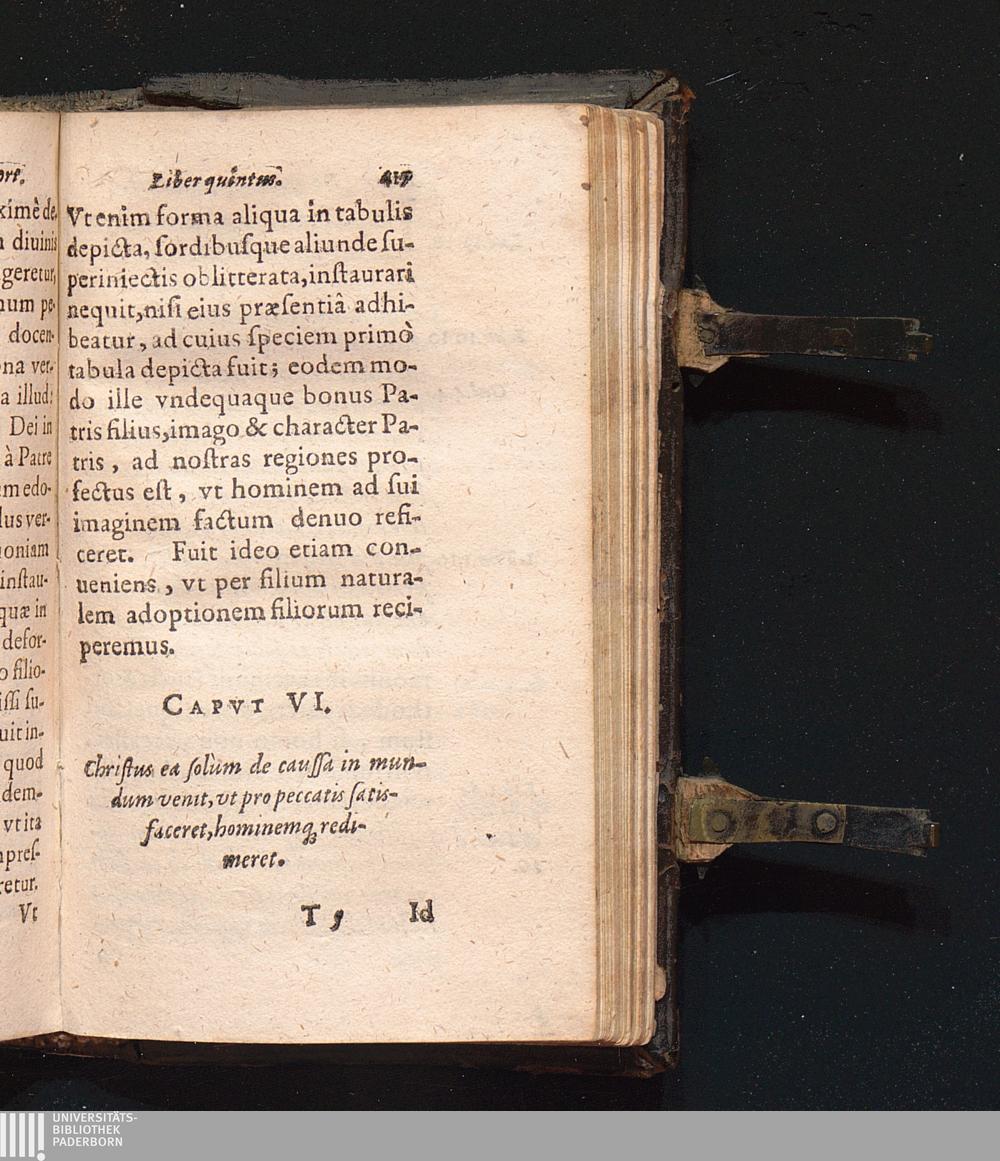 ort.
ximè de-
diuinis
geretur,
num pe-
docen-
na ver-
a illud:
Dei in
à Patre
em edo-
lus ver-
oniam
instau-
quæ in
defor-
o filio-
issi su-
uit in-
quod
dem-
vt ita
pres-
retur.
Vt
Liber quintus.
Vt enim forma aliqua in tabulis
depicta, sordibusque aliunde su-
periniectis oblitterata, instaurari
nequit, nisi eius præsentiâ adhi-
beatur, ad cuius speciem primò
tabula depicta fuit; eodem mo-
do ille vndequaque bonus Pa-
tris filius, imago & character Pa-
tris, ad nostras regiones pro-
fectus est, vt hominem ad sui
imaginem factum denuo refi-
ceret. Fuit ideo etiam con-
ueniens, vt per filium natura-
lem adoptionem filiorum reci-
peremus.
CAPVT VI.
Christus ea solùm de caussa in mun-
dum venit, vt pro peccatis satis-
faceret, hominemq́; redi-
meret.
T 5 Id
UNIVERSITÄTS-
BIBLIOTHEK
PADERBORN